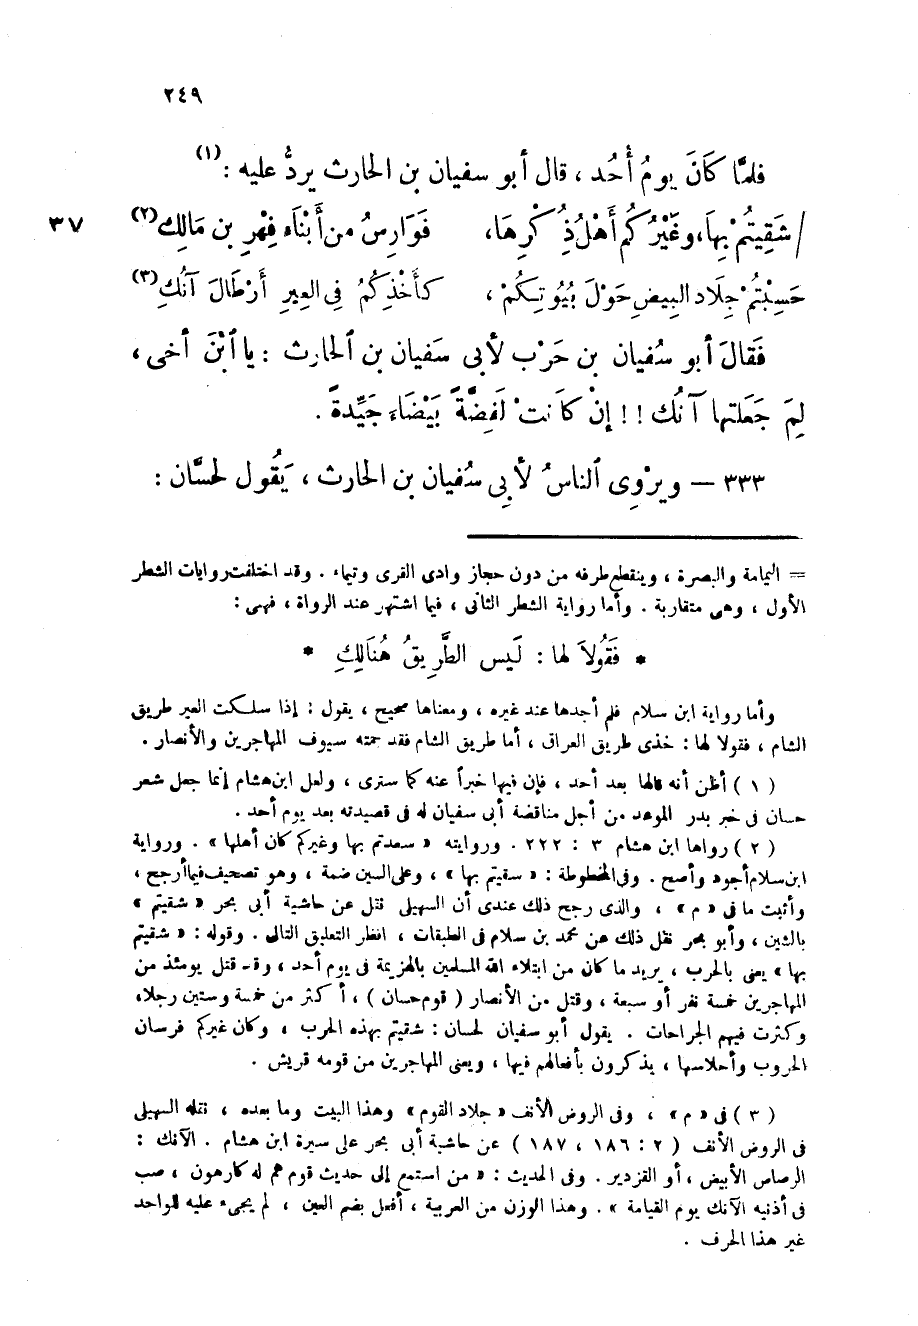 ٢٤٩
فلمَّا كَانَ يومُ أُحُد ، قال أبو سفيان بن الحارث يردُّ عليه :(١)
/ شَقِيتُمْ بِهَا، وغَيْرُكُم أَهْلُ ذِكْرِهَا، فَوَارِسُ من أَبْنَاء فِهْرِ بن مَالِكِ(٢) ٣٧
حَسِبْتُمْ جِلَاد البِيضِ حَوْلَ بُيُوتِكُمْ ، كَأَخْذِكُمُ فى العِيرِ أَرْطَالَ آنُكِ(٣)
فَقَالَ أبو سُفيان بن حَرْب لأبى سَفيان بن الحارث : يا ٱبْنَ أخى ،
لِمَ جَعَلتها آنُك !! إنْ كانَتْ لَفِضَّةً بَيْضَاء جَيِّدةً .
٣٣٣ — ويرْوِى ٱلناسُ لأبِى سُفيان بن الحارث ، يَقُول لحسَّان :
= اليمامة والبصرة ، وينقطع طرفه من دون حجاز وادى القرى وتيماء . وقد اختلفت روايات الشطر
الأول ، وهى متقاربة . وأما رواية الشطر الثانى ، فيما اشتهر عند الرواة ، فهى :
* فَقُولاَ لها : لَيس الطَّرِيقُ هُنَالِكِ *
وأما رواية ابن سلام فلم أجدها عند غيره ، ومعناها صحيح ، يقول : إذا سلكت العير طريق
الشام ، فقولا لها : خذى طريق العراق ، أما طريق الشام فقد حمته سيوف المهاجرين والأنصار .
( ١ ) أظن أنه قالها بعد أحد ، فإن فيها خبراً عنه كما سترى ، ولعل ابن هشام إنما جعل شعر
حسان فى خبر بدر الموعد من أجل مناقضة أبى سفيان له فى قصيدته بعد يوم أحد .
( ٢ ) رواها ابن هشام ٣ : ٢٢٢ . وروايته « سعدتم بها وغيركم كان أهلها » . ورواية
ابن سلام أجود وأصح . وفى المخطوطة : « سقيتم بها » ، وعلى السين ضمة ، وهو تصحيف فيما أرجح ،
وأثبت ما فى « م » ، والذى رجح ذلك عندى أن السهيلى نقل عن حاشية أبى بحر « شقيتم »
بالشين ، وأبو بحر نقل ذلك عن محمد بن سلام فى الطبقات ، انظر التعليق التالى . وقوله : « شقيتم
بها » يعنى بالحرب ، يريد ما كان من ابتلاء الله المسلمين بالهزيمة فى يوم أحد ، وقد قتل يومئذ من
المهاجرين خمسة نفر أو سبعة ، وقتل من الأنصار ( قوم حسان ) ، أكثر من خمسة وستين رجلا ،
وكثرت فيهم الجراحات . يقول أبو سفيان لحسان : شقيتم بهذه الحرب ، وكان غيركم فرسان
الحروب وأحلاسها ، يذكرون بأفعالهم فيها ، ويعنى المهاجرين من قومه قريش .
( ٣ ) فى « م » ، وفى الروض الأنف « جلاد القوم » وهذا البيت وما بعده ، نقله السهيلى
فى الروض الأنف ( ٢ : ١٨٦ ، ١٨٧ ) عن حاشية أبى بحر على سيرة ابن هشام . الآنك :
الرصاص الأبيض ، أو القزدير . وفى الحديث : « من استمع إلى حديث قوم هم له كارهون ، صب
فى أذنيه الآنك يوم القيامة » . وهذا الوزن من العربية ، أفعل بضم العين ، لم يجىء عليه للواحد
غير هذا الحرف .